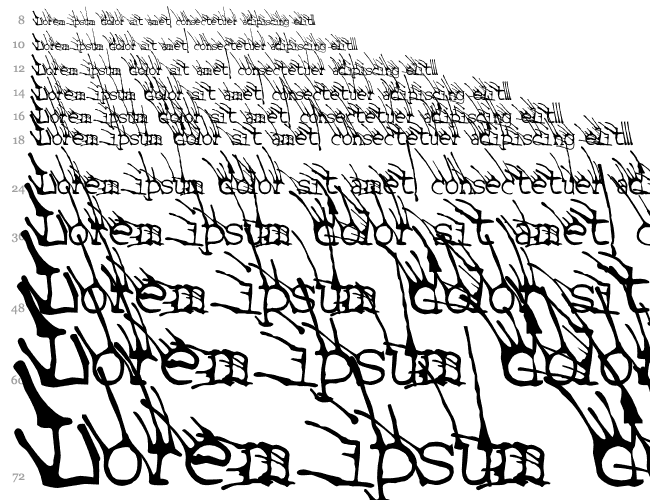 8 Lorem ipsum dolor sit amet, consectetuer adipiscing elit.
10 Lorem ipsum dolor sit amet, consectetuer adipiscing elit.
12 Lorem ipsum dolor sit amet, consectetuer adipiscing elit.
14 Lorem ipsum dolor sit amet, consectetuer adipiscing elit.
16 Lorem ipsum dolor sit amet, consectetuer adipiscing elit.
18 Lorem ipsum dolor sit amet, consectetuer adipiscing elit.
24 Lorem ipsum dolor sit amet, consectetuer ad
36 Lorem ipsum dolor sit amet c
48 Lorem ipsum dolor sit
60 Lorem ipsum dolor
72 Lorem ipsum d